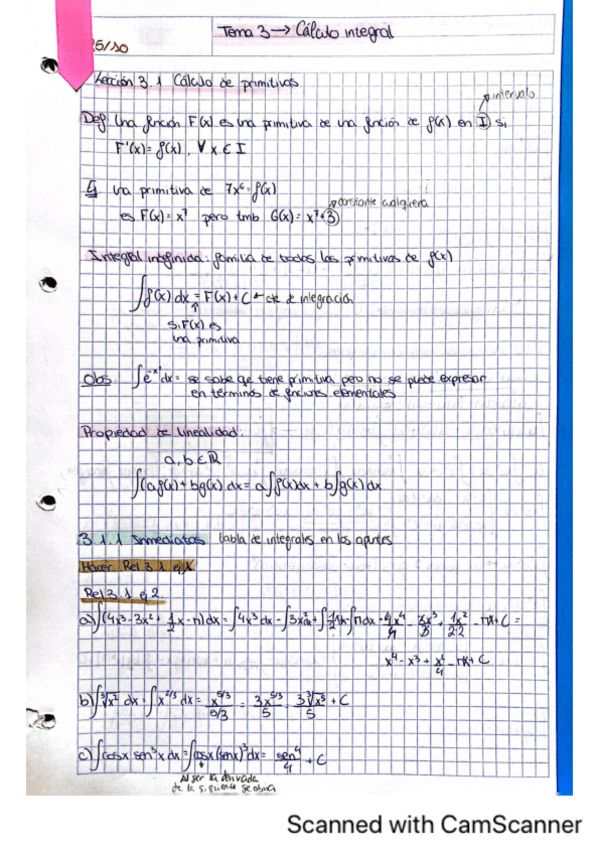 Tema 3 → Cálculo integral
25/10
Lección 3.1 Cálculo de primitivas
intervalo
Def Una función F(x) es una primitiva de una función de f(x) en I si
F'(x) = f(x), ∀ x ∈ I
Ej Una primitiva de 7x⁶ = f(x)
constante cualquiera
es F(x) = x⁷ pero tmb G(x) = x⁷+3
Integral indefinida: familia de todas las primitivas de f(x)
∫f(x) dx = F(x) + C ← cte de integración
si F(x) es
una primitiva
Obs. dx = se sabe qe tiene primitiva pero no se puede expresar
en términos de funciones elementales
Propiedad de linealidad.
a, b ∈ ℝ
∫(af(x) + bg(x)) dx = a∫f(x)dx + b∫g(x)dx
3.1.1 Inmediatas tabla de integrales en los apuntes
Hacer Rel 3.1 ej 1
Rel 3.1 ej 2
a) ∫(4x³ - 3x² + 1/2 x - π) dx = ∫4x³ dx - ∫3x² dx + ∫1/2 x - ∫π dx = 4x⁴/4 - 3x³/3 + 1x²/2·2 - πx + C =
x⁴ - x³ + x²/4 - πx + C
b) ∫∛x² dx = ∫x^2/3 dx = x^5/3 / 5/3 = 3x^5/3 / 5 = 3∛x⁵ / 5 + C
c) ∫cosx sen³x dx = ∫cosx (senx)³ dx = sen⁴/4 + C
Al ser la derivada
de la siguiente se obvia